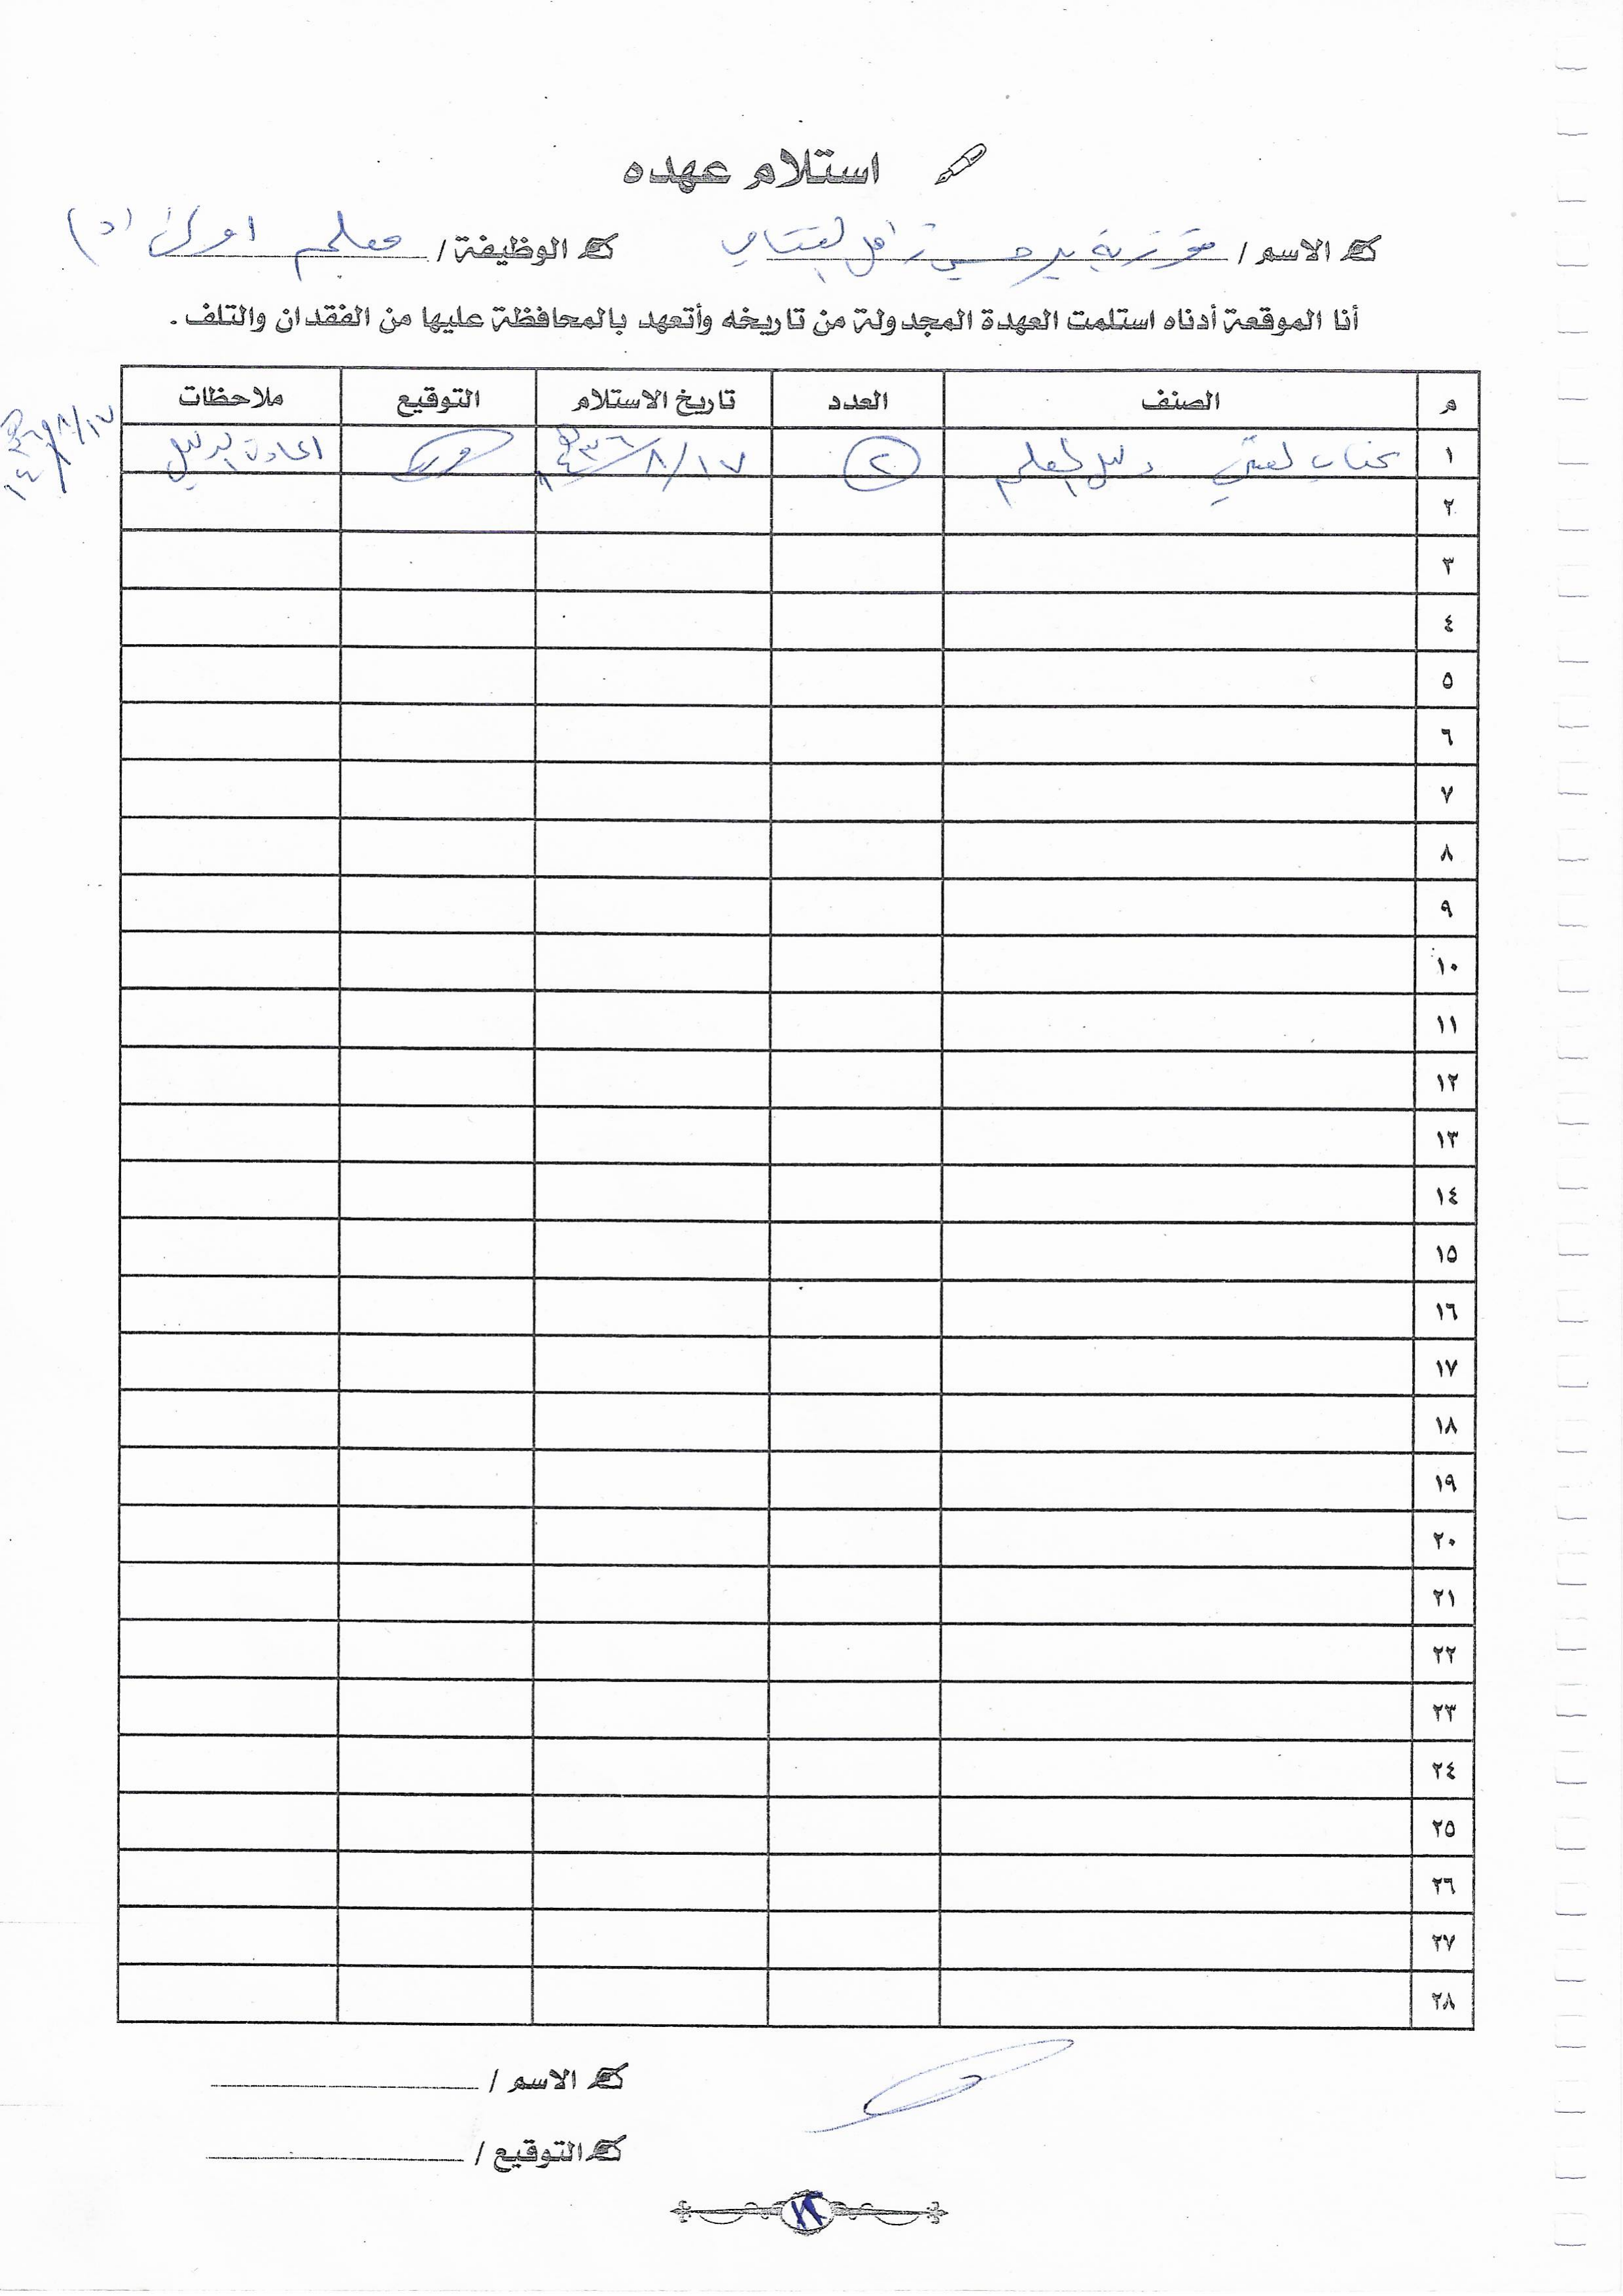 استلام عهده
الاسم / فوزية الوظيفة / معلم اول (د)
أنا الموقعة أدناه استلمت العهدة المجدولة من تاريخه وأتعهد بالمحافظة عليها من الفقدان والتلف .
م الصنف العدد تاريخ الاستلام التوقيع ملاحظات
١ كتاب لغتي دليل المعلم ٢ ١٧/٨/١٤٣٦هـ اعادة الدليل ١٧/٨/١٤٣٦هـ
٢
٣
٤
٥
٦
٧
٨
٩
١٠
١١
١٢
١٣
١٤
١٥
١٦
١٧
١٨
١٩
٢٠
٢١
٢٢
٢٣
٢٤
٢٥
٢٦
٢٧
٢٨
الاسم /
التوقيع /